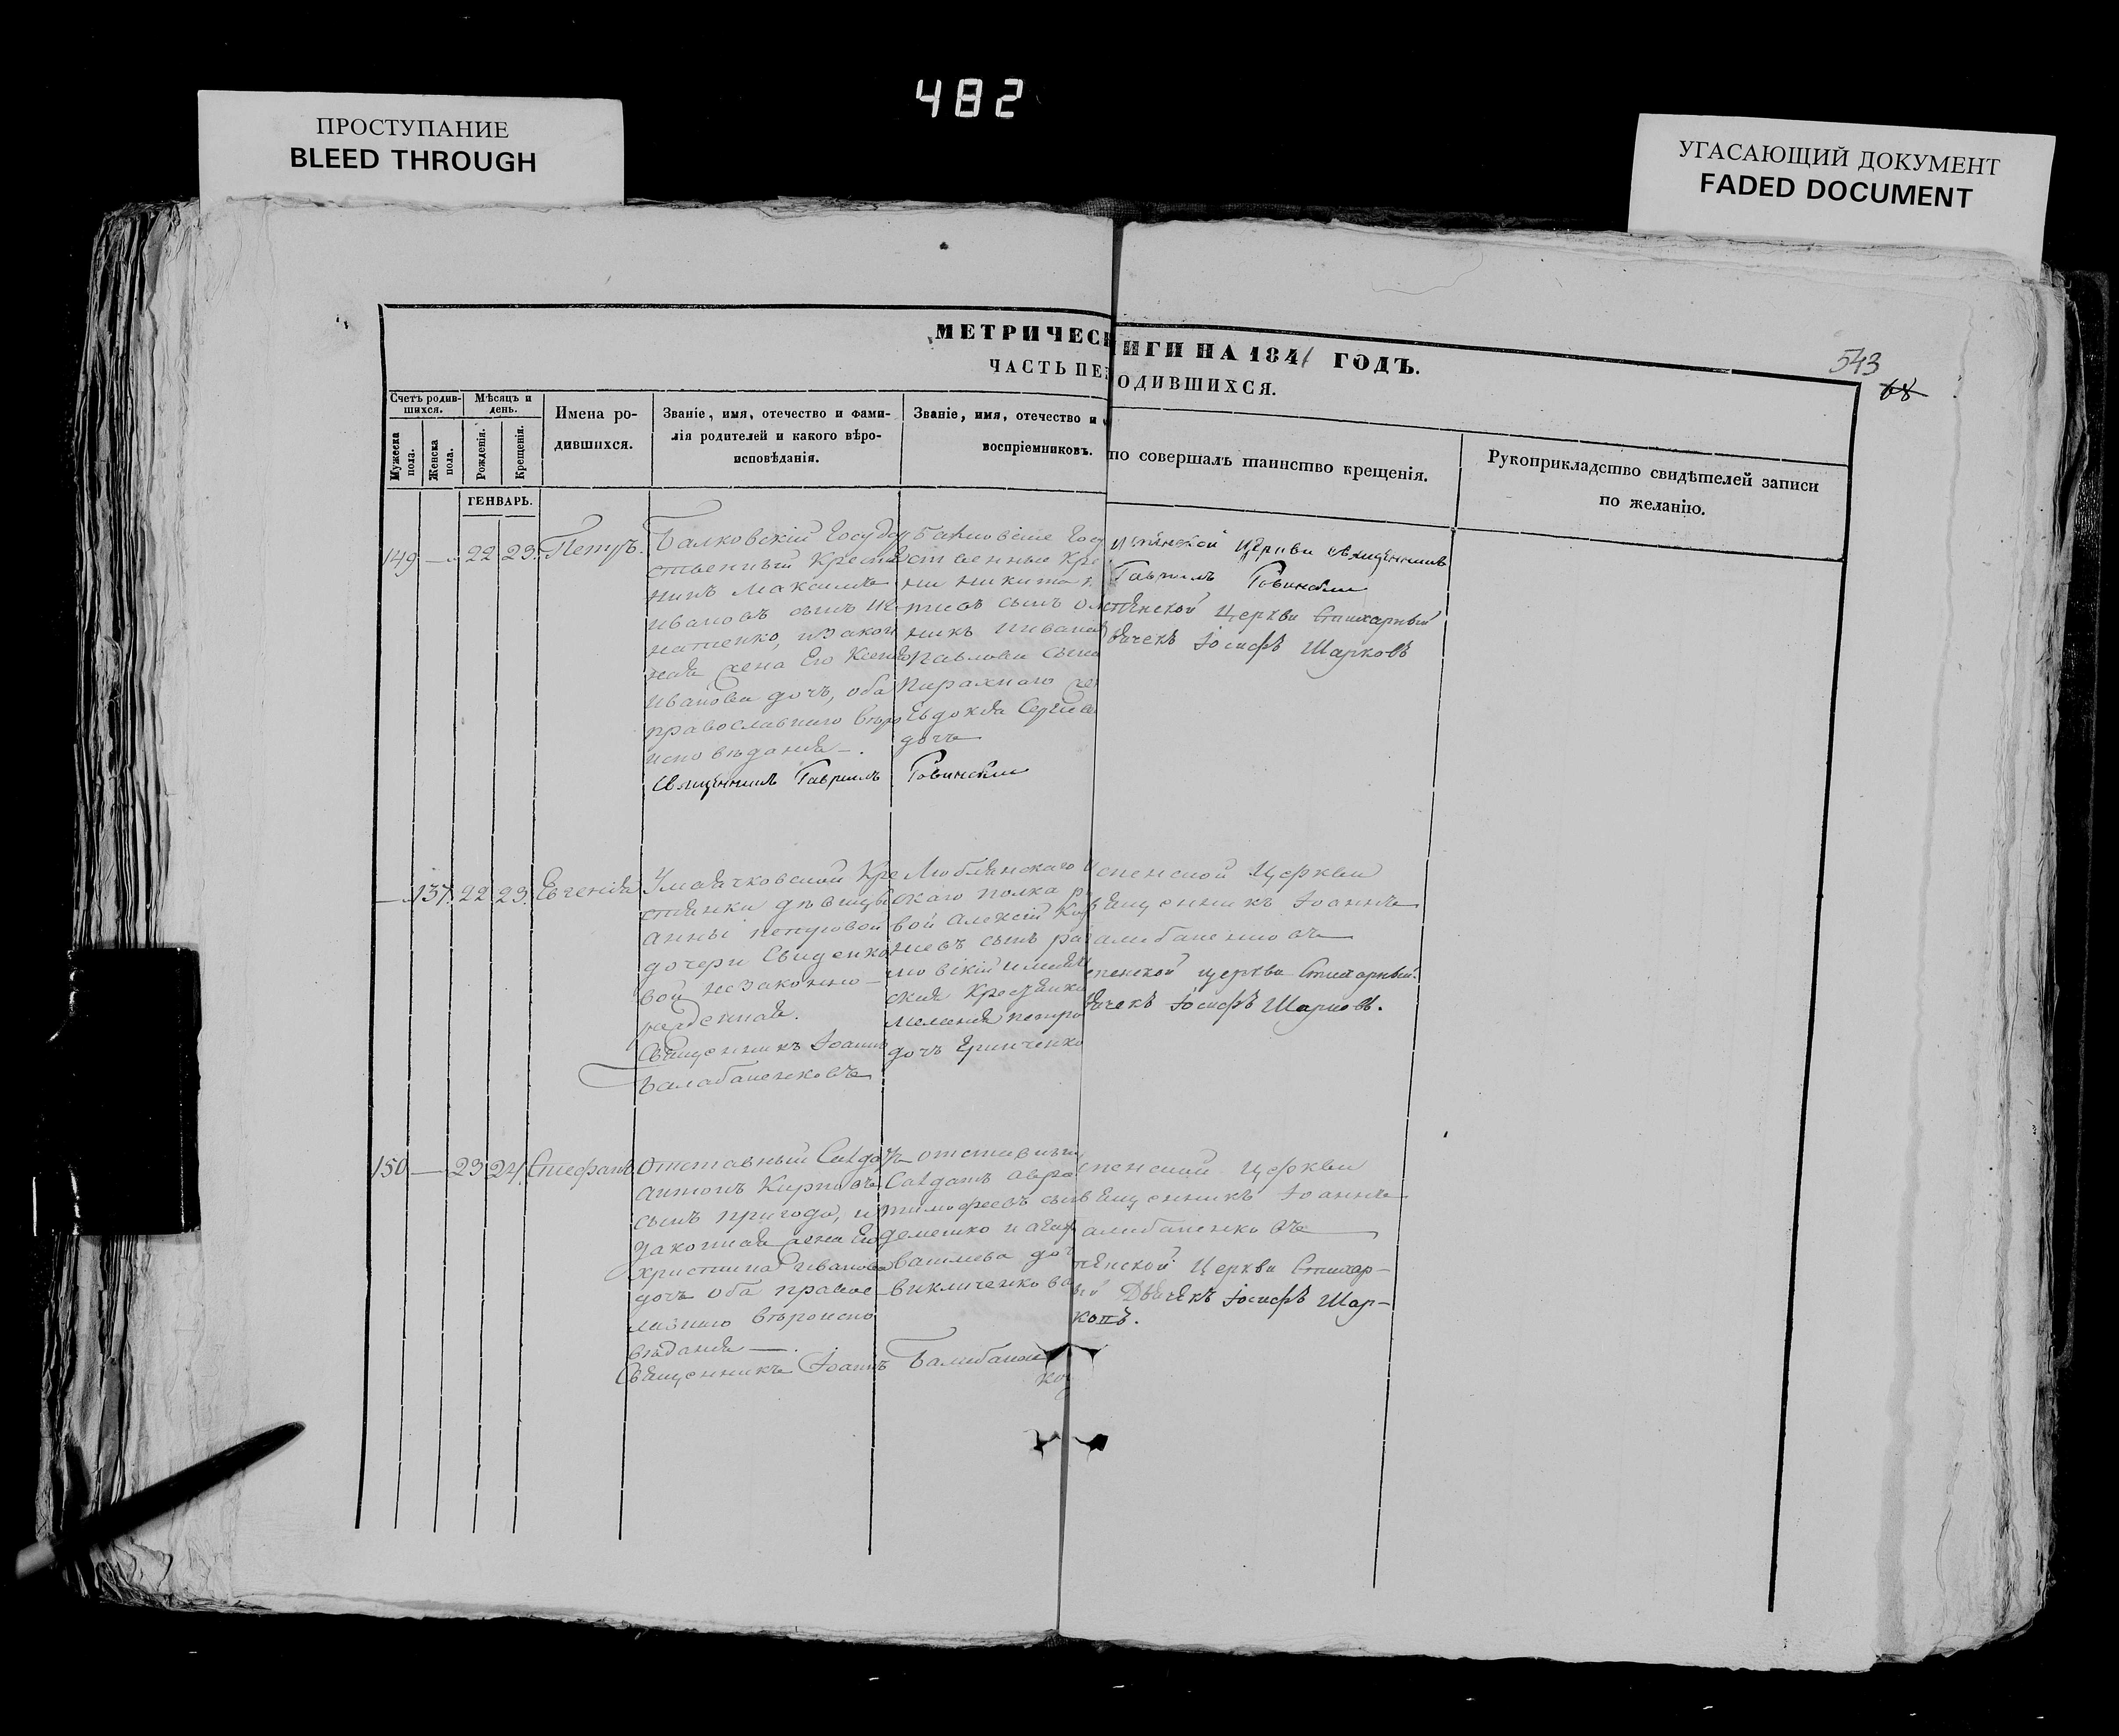 482
ПРОСТУПАНИЕ
BLEED THROUGH
УГАСАЮЩИЙ ДОКУМЕНТ
FADED DOCUMENT
МЕТРИЧЕСК ИГИ НА 1841 ГОДЪ.
ЧАСТЬ ПЕР ОДИВШИХСЯ.
543
68
Счетъ родив-
шихся.
Мѣсяцъ и
день.
Мужеска
пола.
Женска
пола.
Рожденія.
Крещенія.
Имена ро-
дившихся.
Званіе, имя, отечество и фами-
лія родителей и какого вѣро-
исповѣданія.
Званіе, имя, отечество и ф
воспріемниковъ.
то совершалъ таинство крещенія.
Рукоприкладство свидѣтелей записи
по желанію.
ГЕНВАРЬ.
149 — 22 23 Петръ.
Балковскій Государ
ственный Крестья
нинъ Максимъ
Ивановъ сынъ Иг
натенко, и закон
ная жена его Ксенія
Иванова дочь, оба
православнаго вѣро
исповѣданія —.
Священникъ Гавриилъ Ровинскій
ственные Кре
Павловъ сынъ
Евдокія Сергіева
дочь
Церкви священникъ
Гавриилъ Ровинскій
Церкви Стихарный
дьячекъ Іосифъ Шарковъ
— 137 22 23 Евгенія
Кре
стьянки дѣвицы
Анны Петровой
дочери Свиденко
вой незаконно-
рожденная.
Священникъ Іоаннъ
Балабаненковъ
Люблинскаго
скаго полка
вой Алексій
евъ сынъ
Крестьянка
Меланія Петро
дочь Гринченко
спенской Церкви
вященникъ Іоаннъ
алабаненковъ
пенской церкви Стихарный
дьячекъ Іосифъ Шарковъ.
150 — 23 24 Стефанъ
Отставный Салда
Антонъ Карповъ
сынъ Пригода, и
законная жена его
Христина Иванова
дочь оба правос-
лавнаго вѣроиспо
вѣданія —.
Священникъ Іоаннъ Балабанен
ко
отставный
Салдатъ Авра
Тимофеевъ сын
Демешко и Агаф
ва до
спенской Церкви
вященникъ Іоаннъ
алабаненковъ
Церкви Стихар-
ый Дьячекъ Іосифъ Шар-
ковъ.